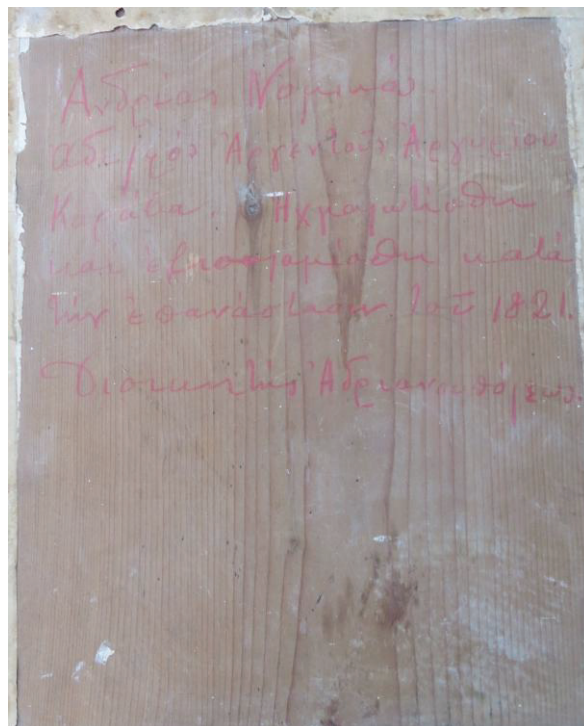 Ἀνδρέας Νομικός.
ἀδελφός Ἀργεντοῦς Ἀργυρίου
Καράβα. Ἠχμαλωτίσθη
καί ἐξισλαμίσθη κατά
τήν ἐπανάστασιν τοῦ 1821.
Διοικητής Ἀδριανουπόλεως.